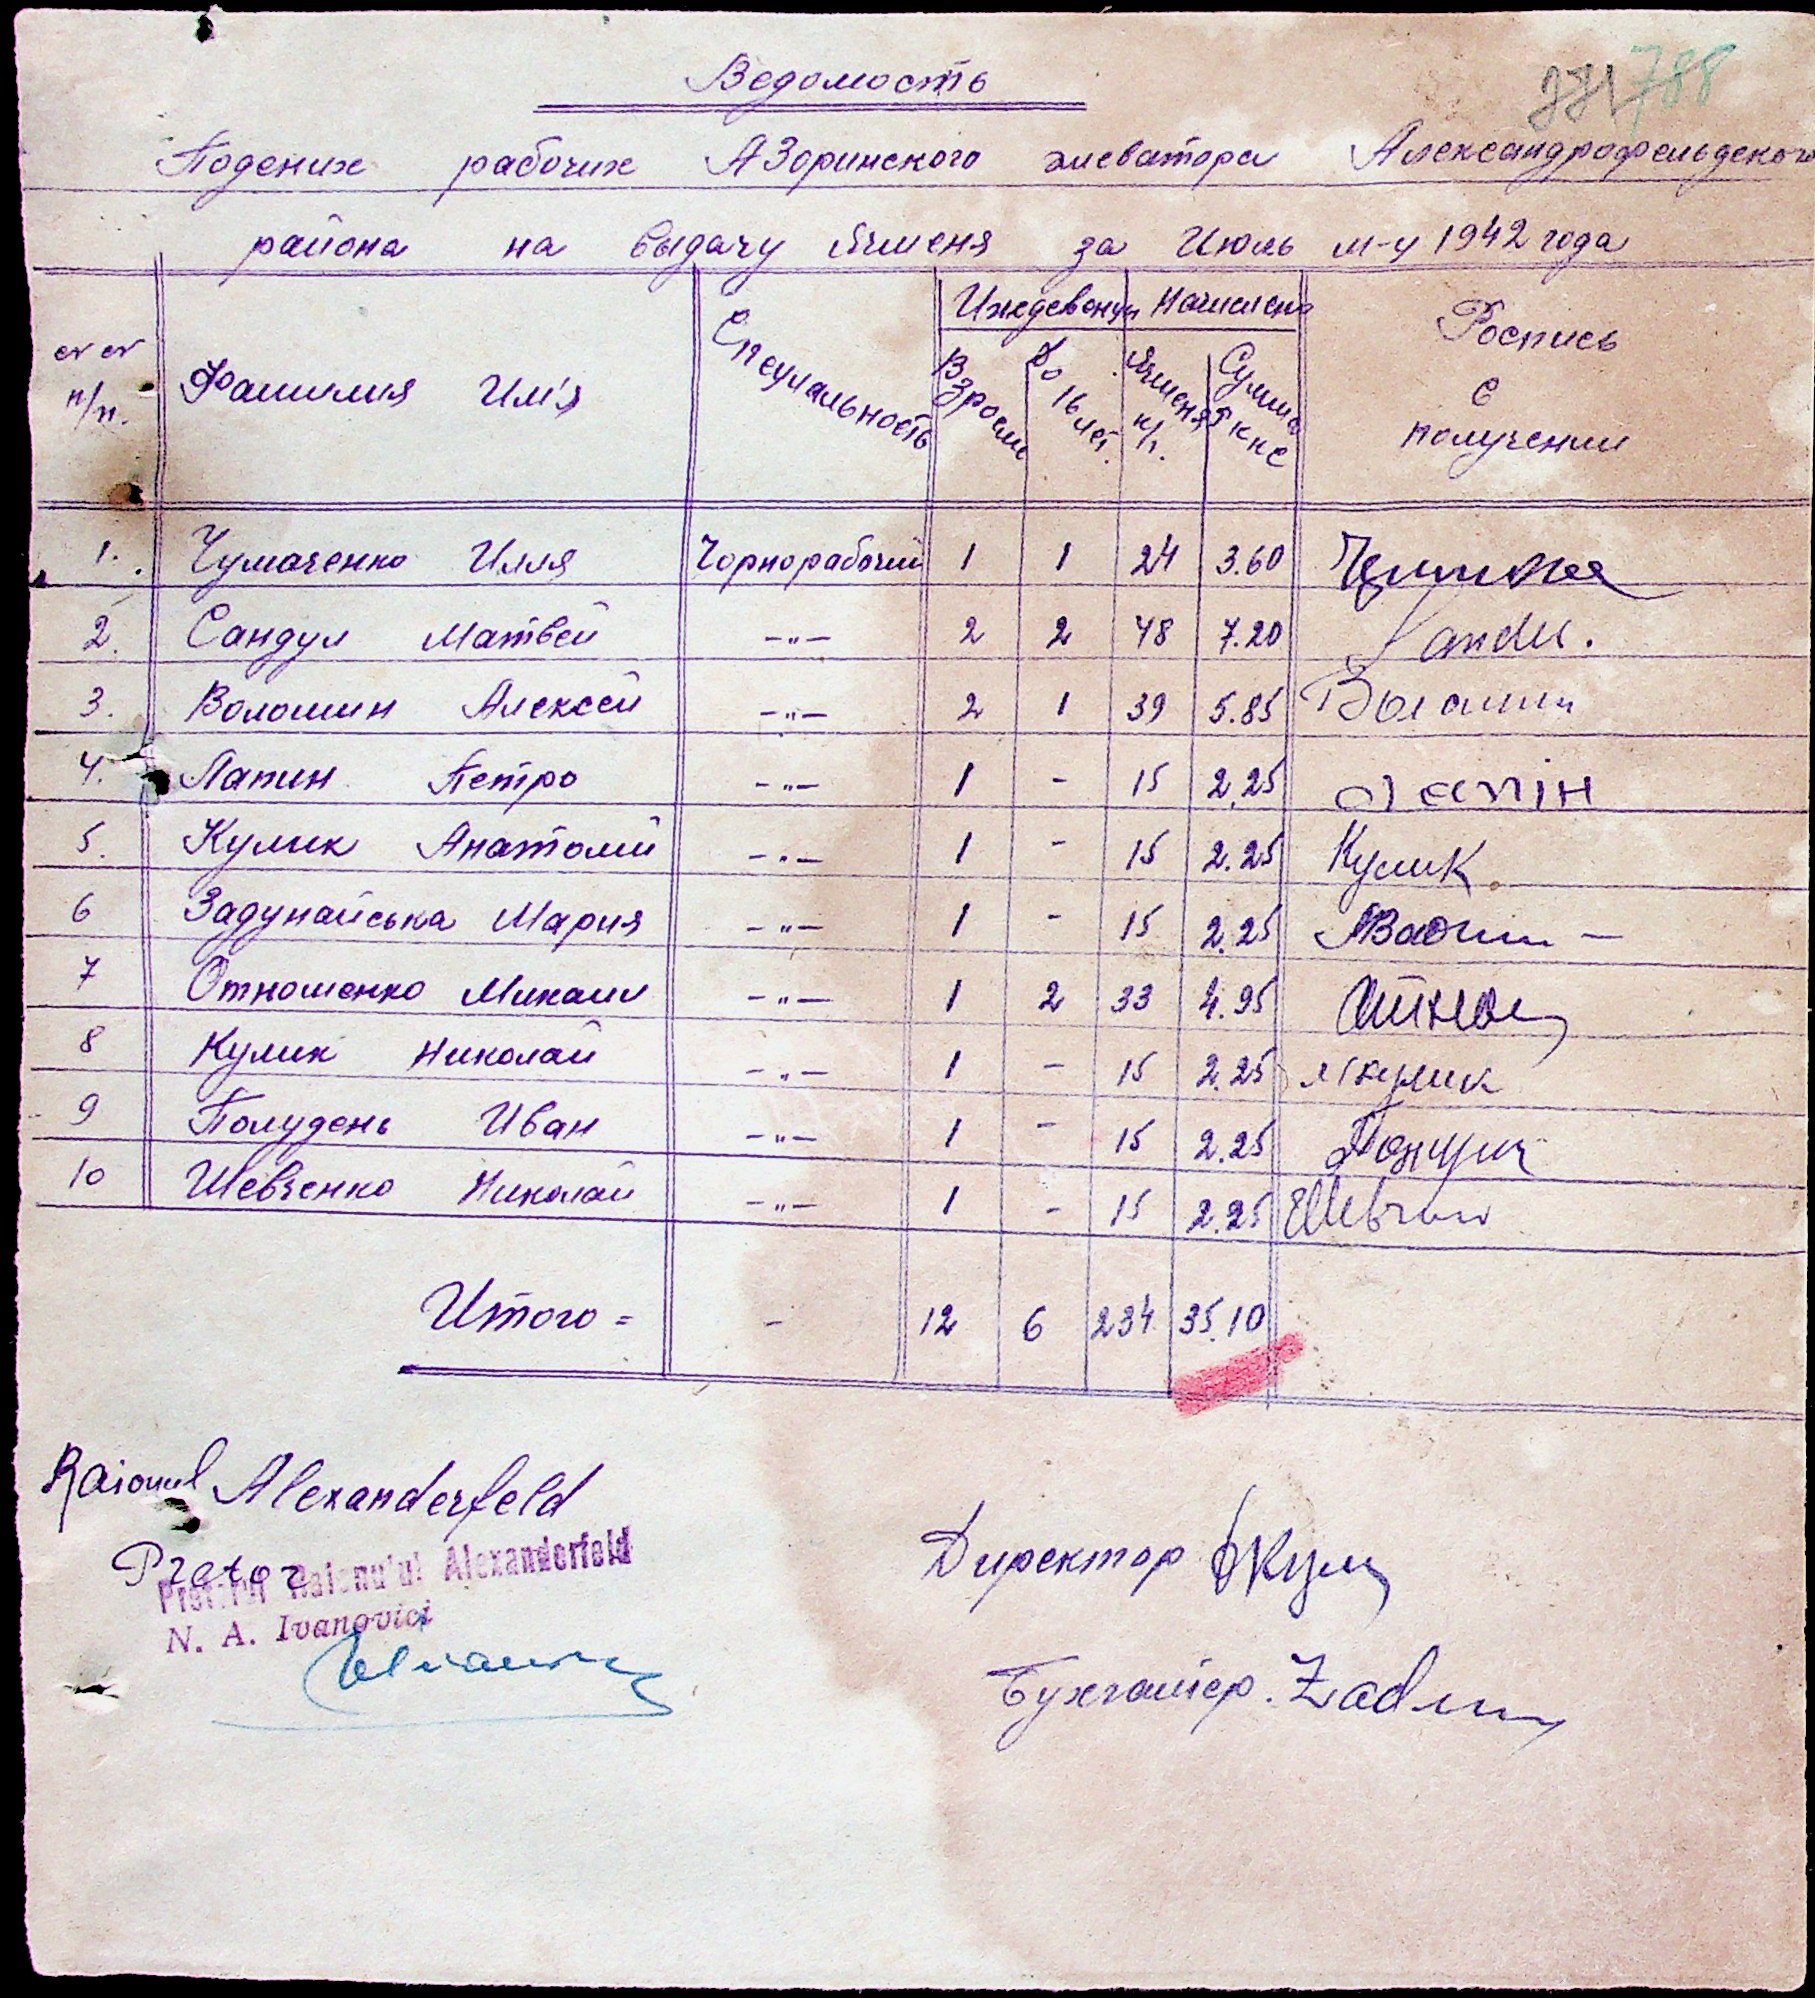 788
Ведомость
Подених рабочих АЗоринского элеватора Александрофельдского
района на выдачу Ячменя за Июль м-ц 1942 года
п/п. Фамилия Им'я Специальность Иждевенци Начислено Роспись с получении
Взросл До 16 лет. Ячменя кг. Сумма РККС
1. Чумаченко Илля Чорнорабочий 1 1 24 3.60
2. Сандул Матвей -"- 2 2 48 7.20 Sandul.
3. Волошин Алексей -"- 2 1 39 5.85 Волошин
4. Лапин Петро -"- 1 - 15 2.25 лапін
5. Кулик Анатолий -"- 1 - 15 2.25 Кулик
6 Задунайська Мария -"- 1 - 15 2.25
7 Отношенко Михаил -"- 1 2 33 4.95
8 Кулик Николай -"- 1 - 15 2.25 кулик
9 Полудень Иван -"- 1 - 15 2.25
10 Шевченко Николай -"- 1 - 15 2.25
Итого = - 12 6 234 35.10
Raionul Alexanderfeld
Pretor
Pretorul Raionului Alexanderfeld
N. A. Ivanovici
Директор
Бухгалтер.